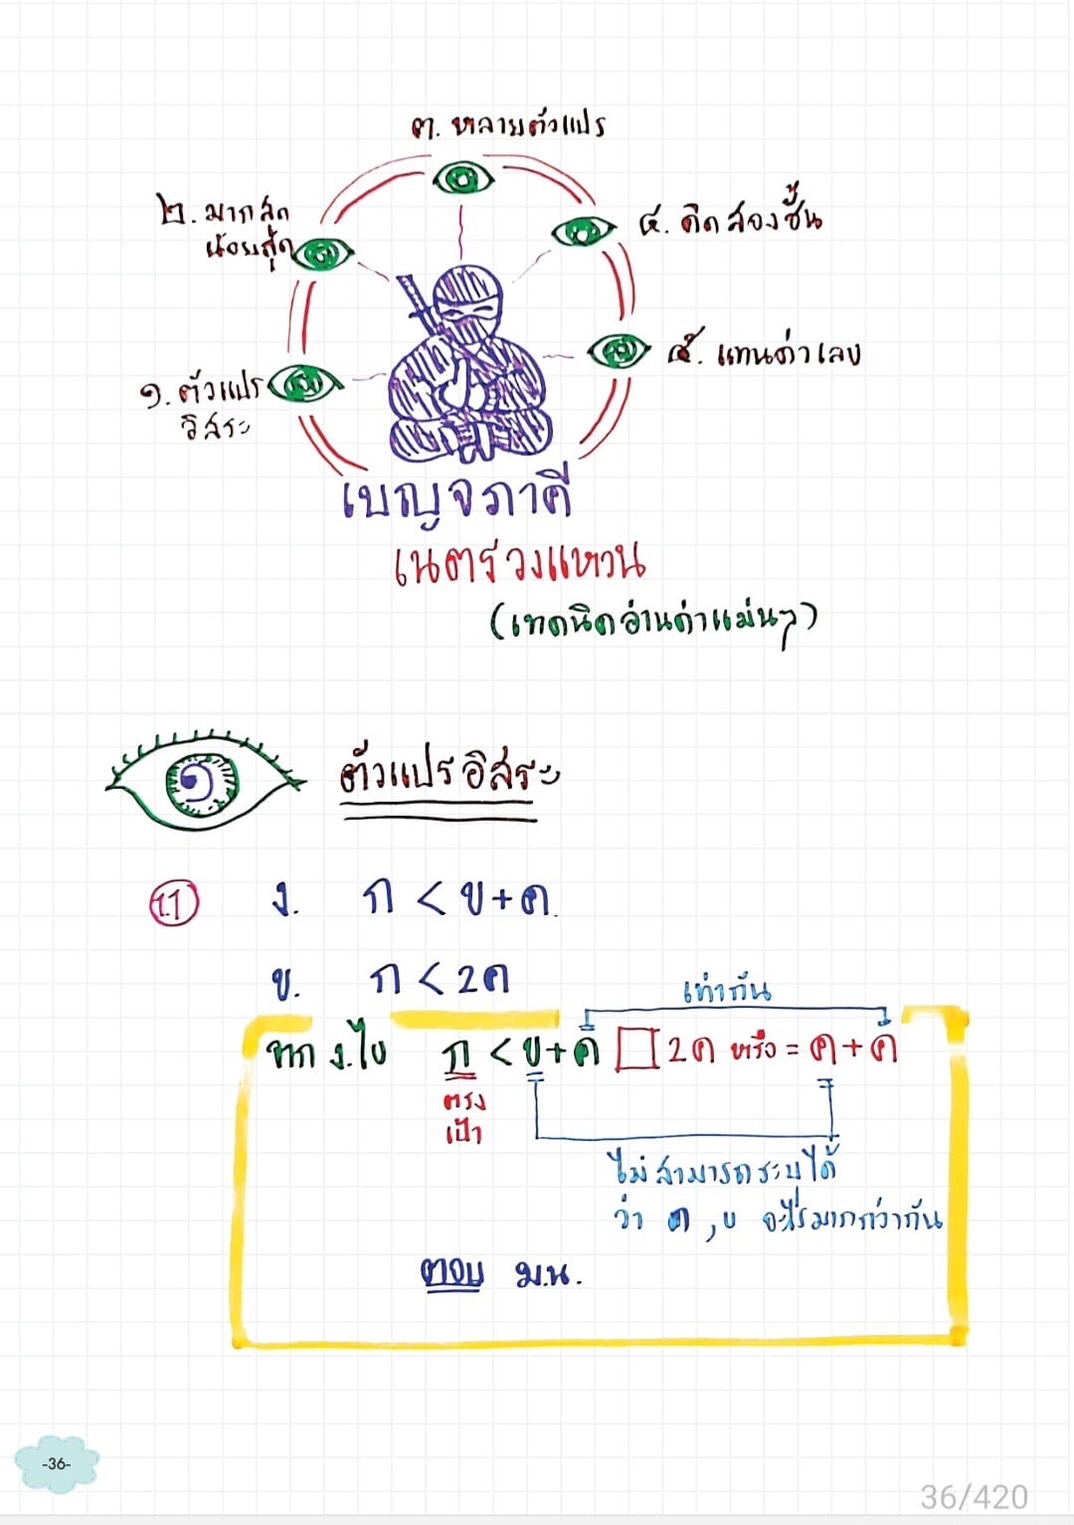 ๓. หลายตัวแปร
๒. มากสุด
น้อยสุด
๔. คิดสองชั้น
๕. แทนค่าเลข
๑. ตัวแปร
อิสระ
เบญจภาคี
เนตรวงแหวน
(เทคนิคอ่านค่าแม่นๆ)
๑ ตัวแปรอิสระ
1.1 ง. ก < ข+ค.
ข. ก < 2ค
เท่ากัน
จาก ง.ไข ก < ข+ค □ 2ค หรือ = ค+ค
ตรง
เป้า
ไม่สามารถระบุได้
ว่า ค , ข อะไรมากกว่ากัน
ตอบ ม.น.
-36-
36/420